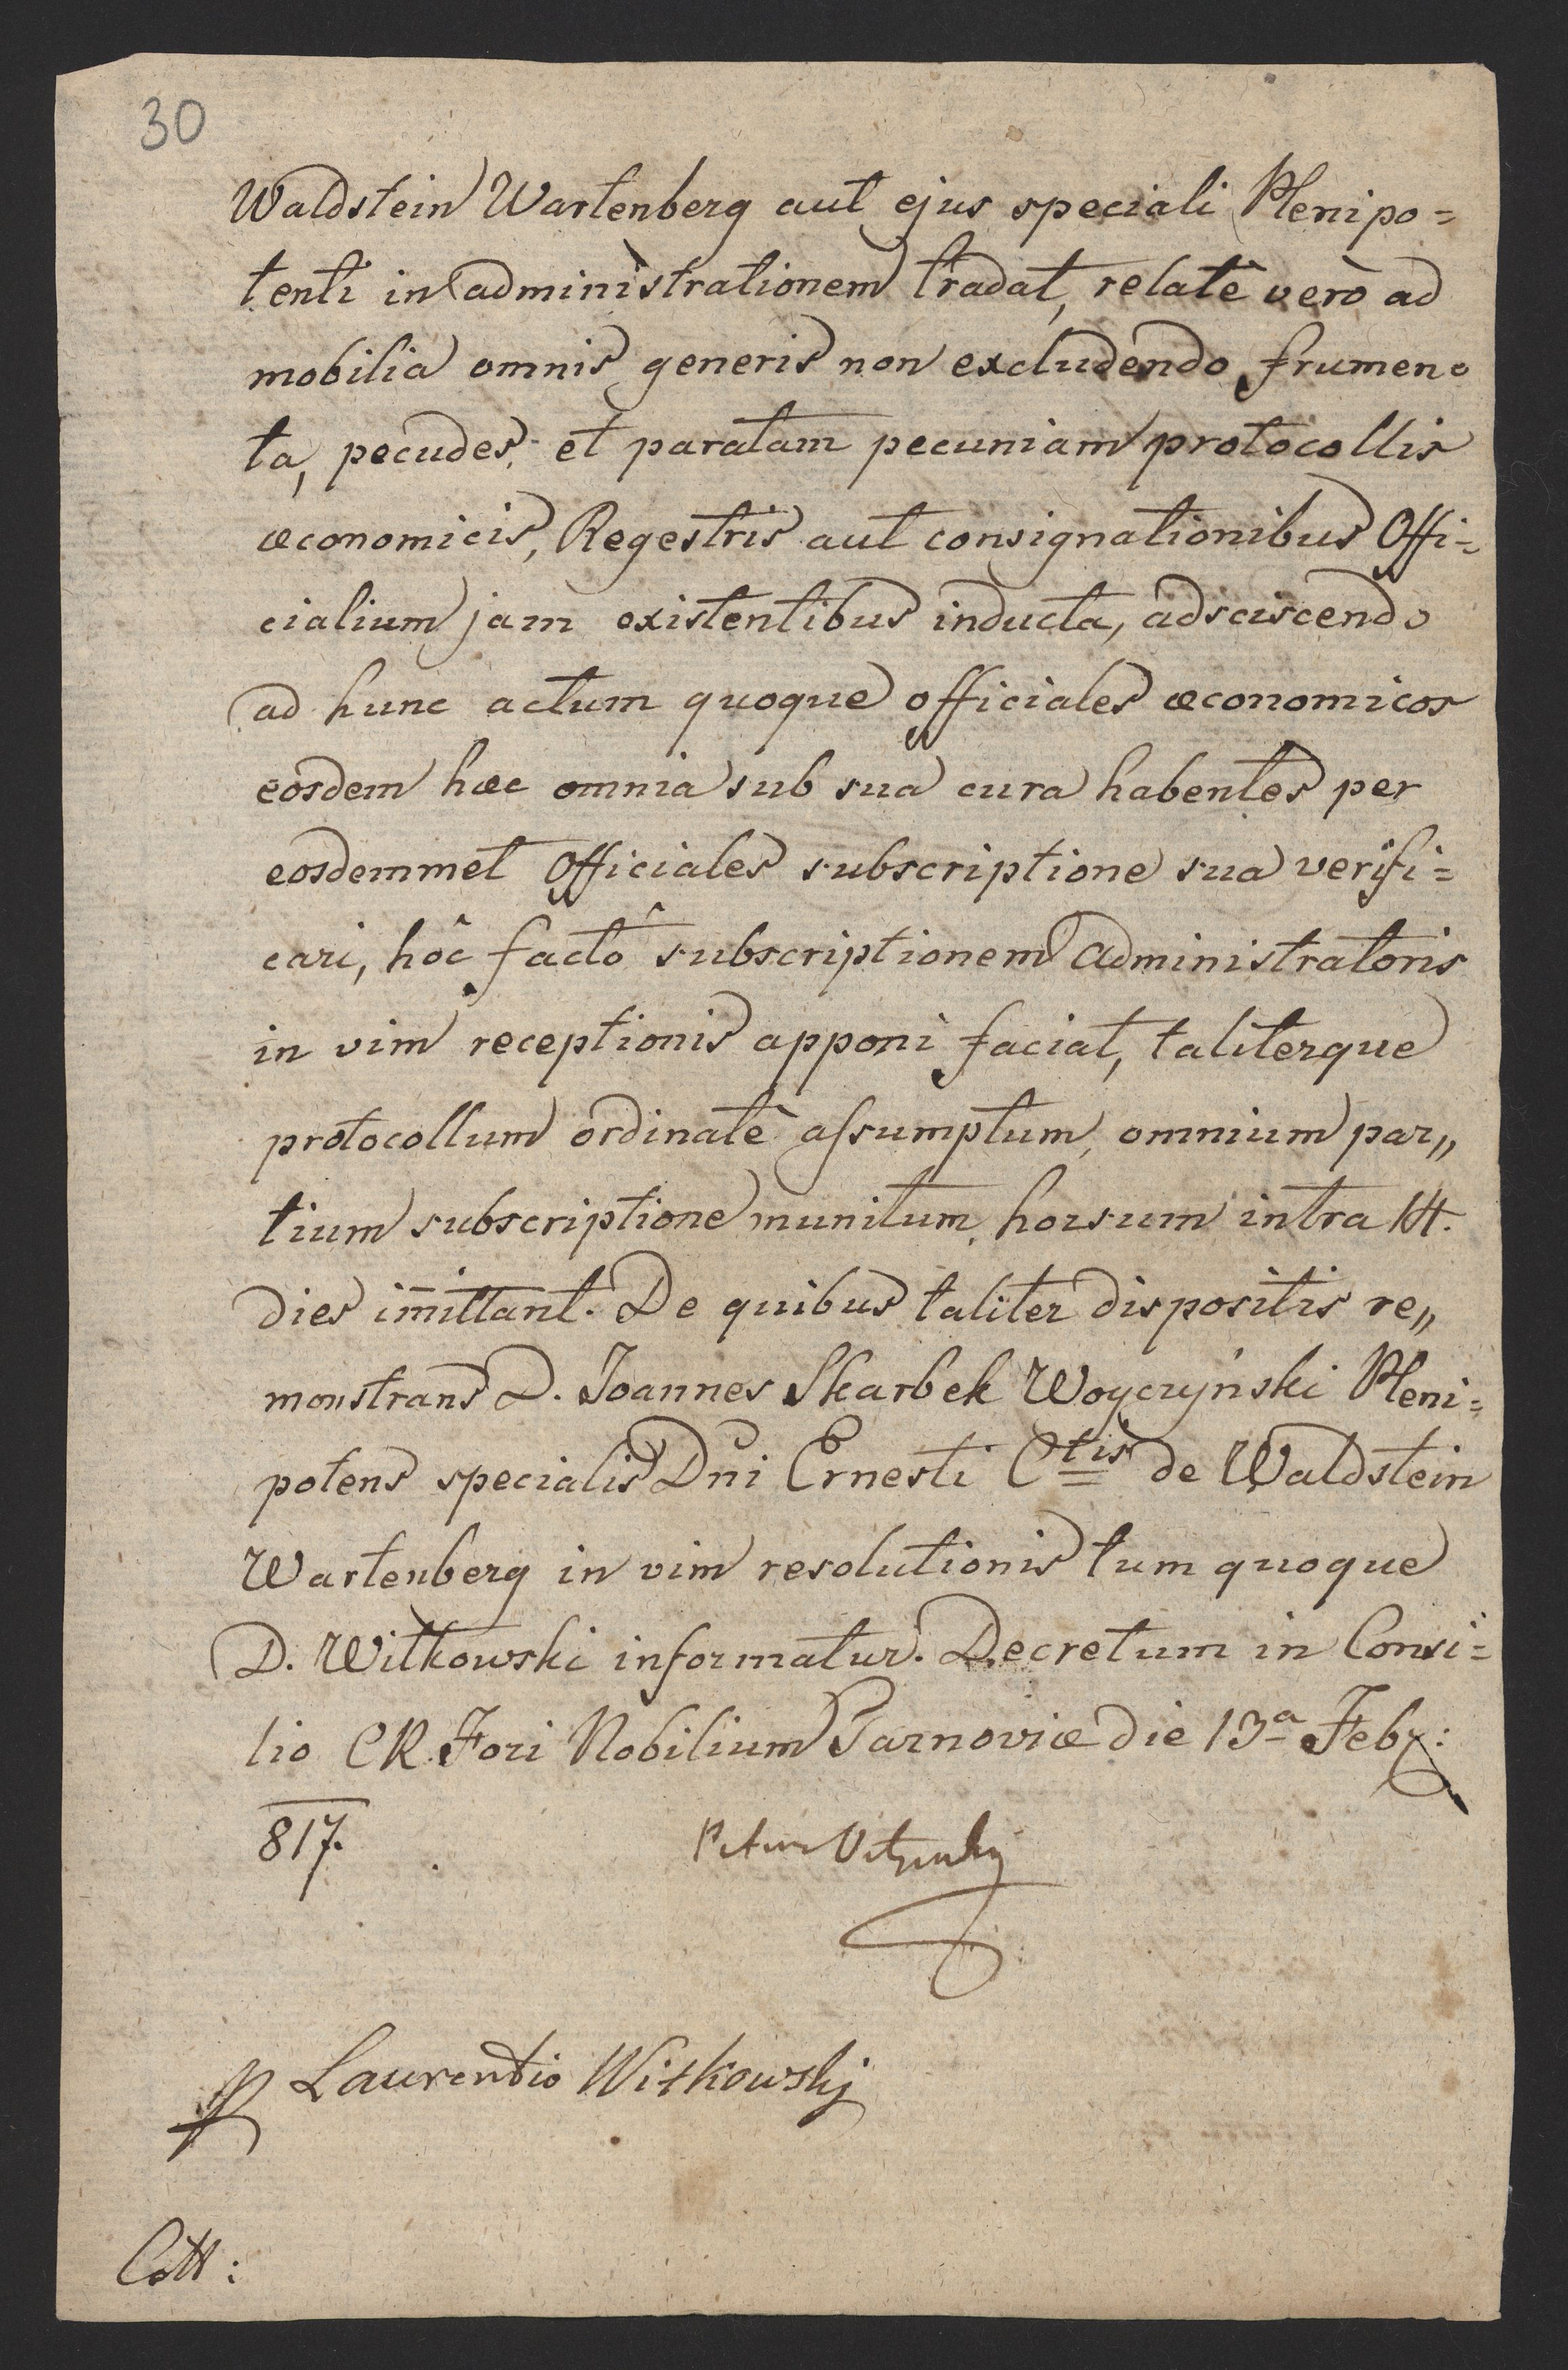 30
Waldstein Wartenberg aut ejus speciali Plenipo=
tenti in administrationem tradat, relatè verò ad
mobilia omnis generis non excludendo frumen=
ta, pecudes, et paratam pecuniam protocollis
œconomicis, Regestris aut consignationibus Offi=
cialium jam existentibus inducta, adsciscendo
ad hunc actum quoque officiales œconomicos
eosdem hæc omnia sub sua cura habentes per
eosdemmet Officiales subscriptione sua verifi=
cari, hôc factô subscriptionem Administratoris
in vim receptionis apponi faciat, taliterque
protocollum ordinatè aſsumptum, omnium par„
tium subscriptione munitum, horsum intra 14.
dies im̄ittant. De quibus taliter dispositis re„
monstrans D. Joannes Skarbek Woyczyński Pleni=
potens specialis Dni Ernesti Ctis de Waldstein
Wartenberg in vim resolutionis tum quoque
D. Witkowski informatur. Decretum in Consi=
lio CR. Fori Nobilium Tarnoviæ die 13a Febr:
817.
Laurentio Witkowskj